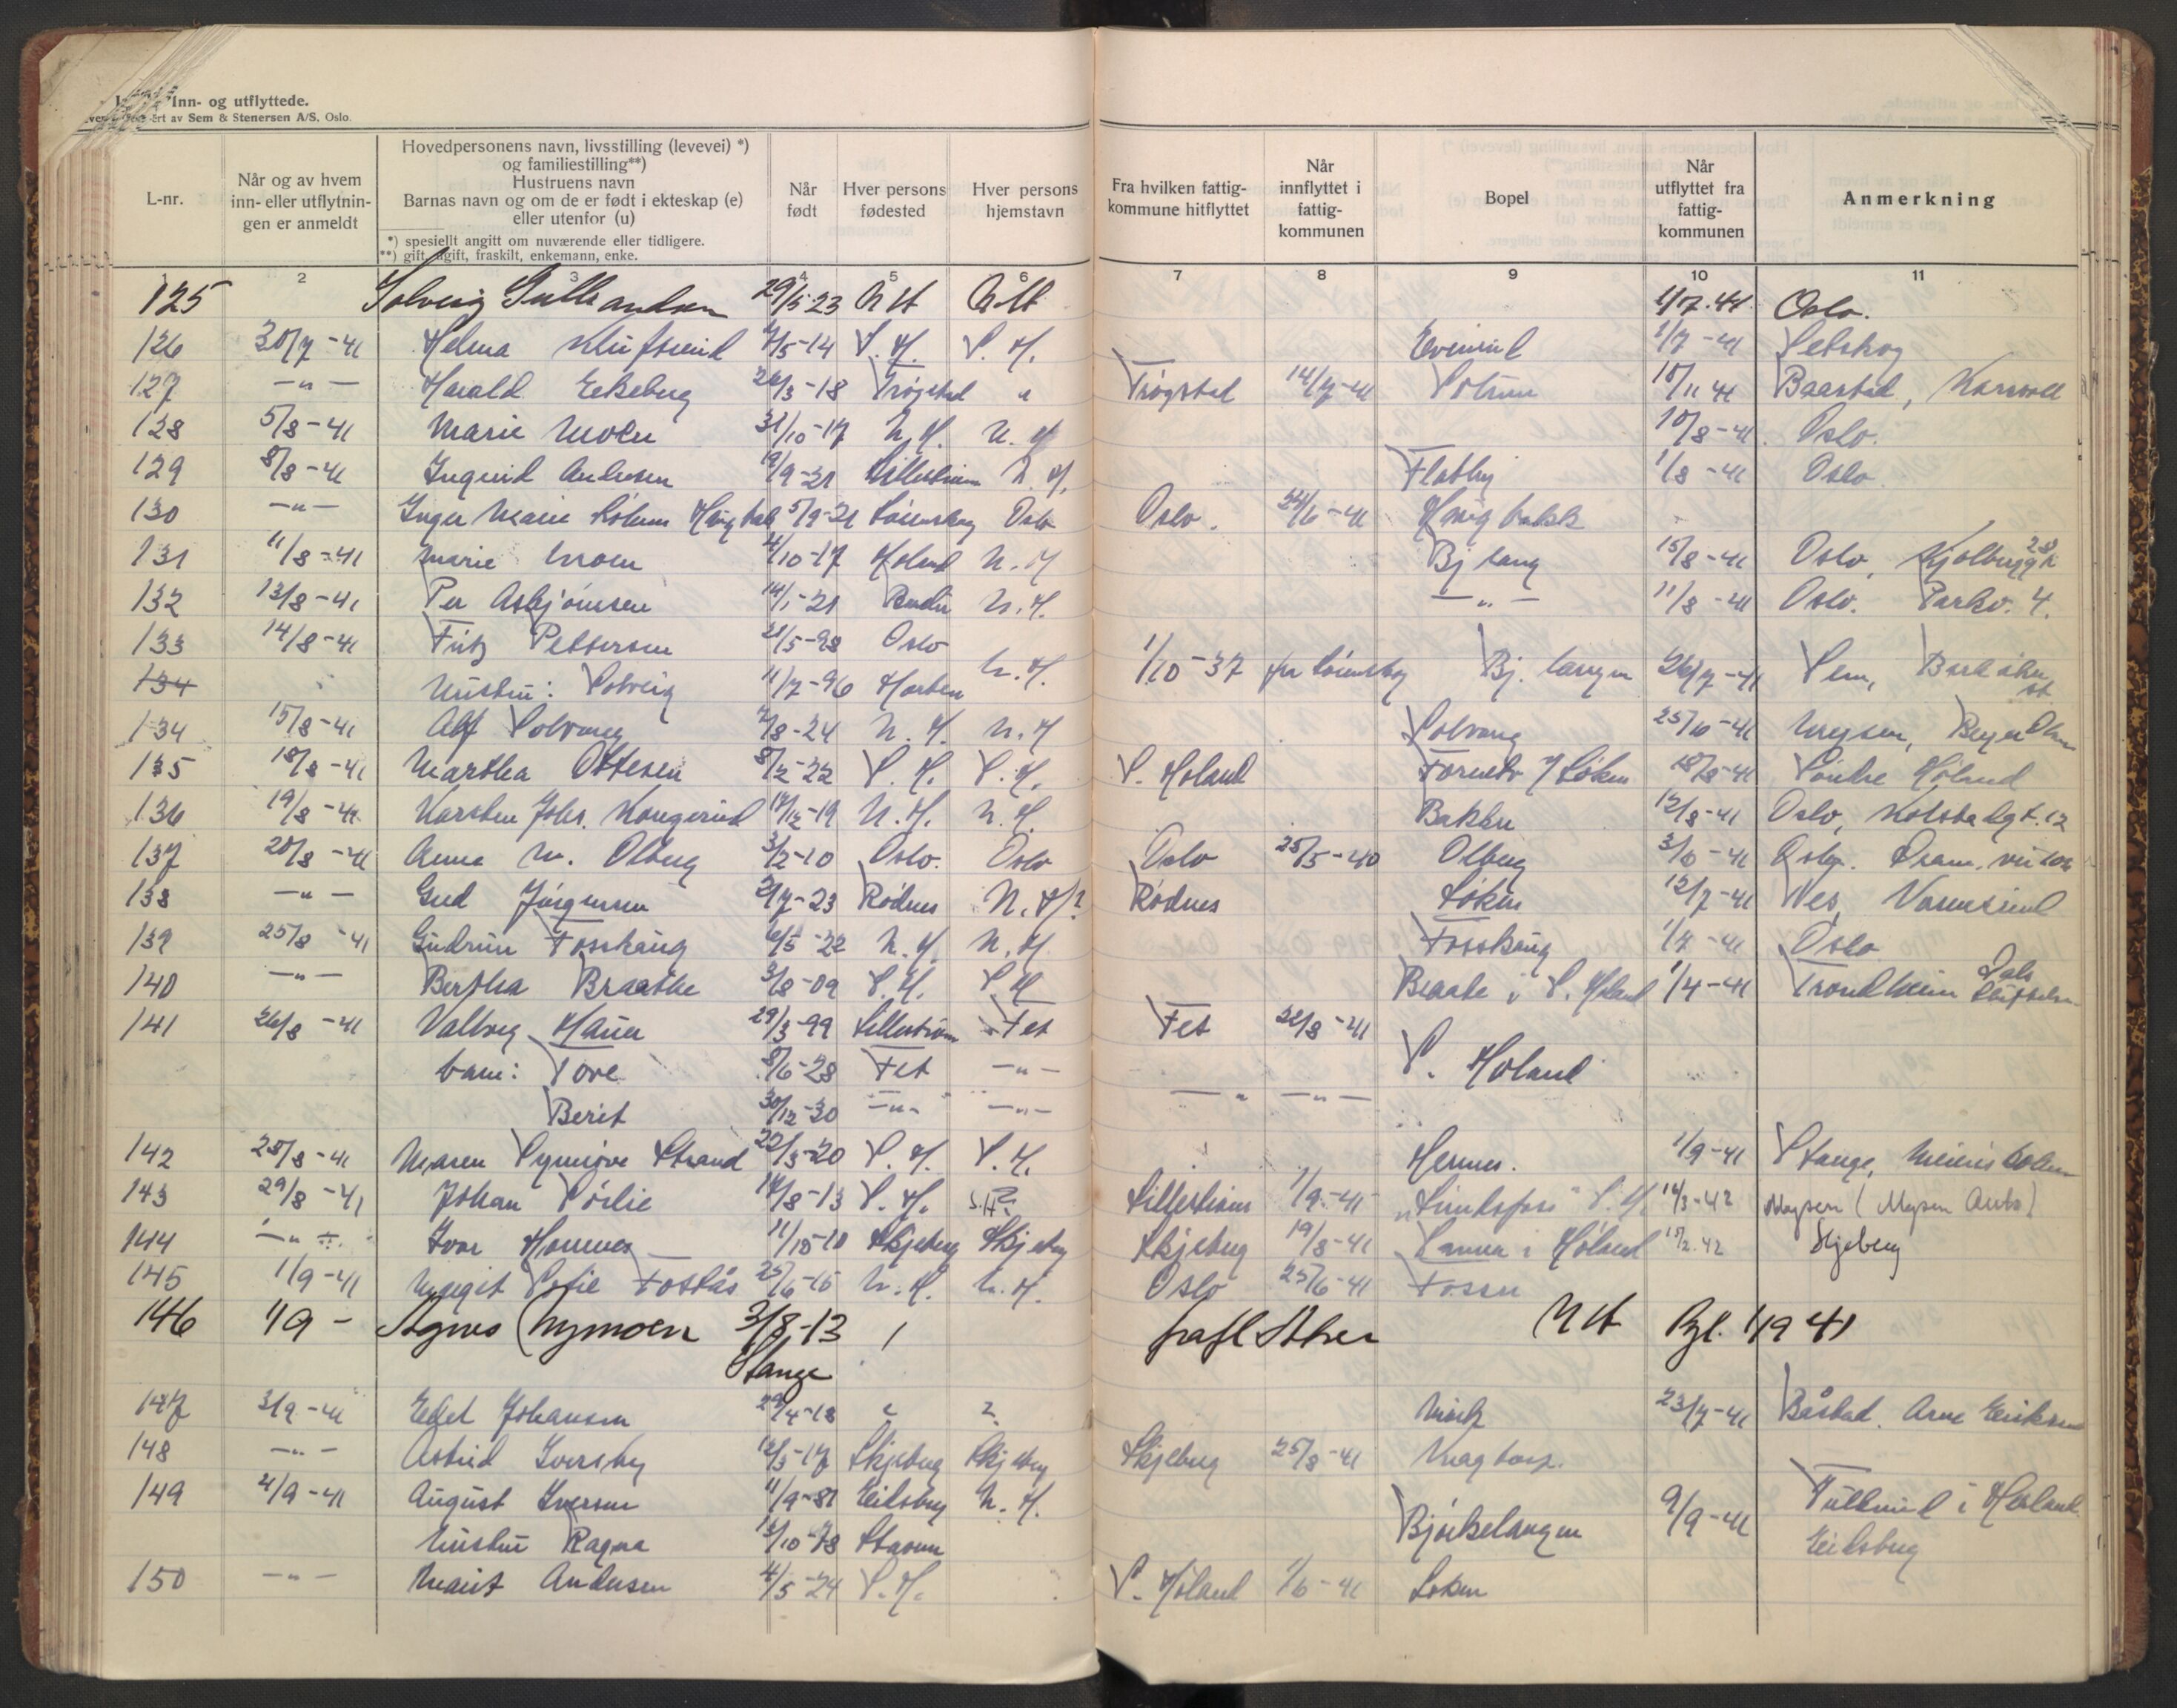 Inn- og utflyttede.
Sem & Stenersen A/S, Oslo.
L-nr.
Når og av hvem inn- eller utflytnin- gen er anmeldt
Hovedpersonens navn, livsstilling (levevei) *)
og familiestilling**)
Hustruens navn
Barnas navn og om de er født i ekteskap (e)
eller utenfor (u)
*) spesielt angitt om nuværende eller tidligere.
**) gift, ugift, fraskilt, enkemann, enke.
Når født
Hver persons fødested
Hver persons hjemstavn
Fra hvilken fattig- kommune hitflyttet
Når innflyttet i fattig- kommunen
Bopel
Når utflyttet fra fattig- kommunen
Anmerkning
2 3 4 5 6 7 8 9 10 11
125 Solveig 29/5-23 N H N H 1/7.41 Oslo.
126 30/7-41 Helma 5-14 S. H. S. H. 1/7-41 Setskog
127 —"— Harald Eckeberg 26/3-18 Trøgstad " Trøgstad 14/7-41 10/11 41 Baastad,
128 5/8-41 Marie Moen 31/10-17 N. H. N. H. 10/8-41. Oslo.
129 8/8-41 Ingerid Andersen 19/9-21 Lillestrøm N. H. Flatby 1/8-41 Oslo.
130 —"— Inger Marie 5/9-21 Lørenskog Oslo Oslo. 24/6-41 Haugbakk
131 11/8-41 Marie Moen 4/10-17 Høland N. H Bj lang 15/8-41 Oslo,
132 13/8-41 Per Asbjørnsen 14/1-21 N. H. —"— 11/8-41 Oslo. Parkv. 4.
133 14/8-41 Fritz Pettersen 21/5-98 Oslo
134 Hustru: Solveig 11/7-96 Horten N. H. 1/10-37 fra Lørenskog Bj. langen 26/7-41 Sem,
134 15/8-41 Alf Solvang 8-24 N. H. N. H Solvang 25/6-41 Mysen,
135 18/8-41 Martha Ottesen 8/2-22 S. H. S. H. S. Høland Løken 18/8-41 Søndre Høland
136 19/8-41 Karsten Johs. Kongerud 17/12-19 N. H. N. H. Bakken 12/8-41 Oslo,
137 20/8-41 Anna M. Olberg 3/2-10 Oslo. Oslo Oslo 25/5-40 Olberg 3/6-41
138 —"— Gerd Jørgensen 7-23 Rødnes N. H? Rødnes Løken 12/7-41 Nes,
139 25/8-41 Gudrun Fosshaug 5-22 N. H. N. H. Fosshaug -41 Oslo
140 —"— Bertha Braathe 3/8-09 S. H. S. H Braate i S. Høland 1/4-41 Trondheim
141 26/8-41 Valborg 29/3-99 Lillestrøm Fet Fet 22/8-41
barn: Tove 8/6-28 Fet —"— S. Høland
Berit 30/12-30 —"— —"— —"— —"—
142 28/8-41 Maren Synnøve Strand 22/3-20 S. H. S. H. Hemnes. 1/9-41 Stange,
143 29/8-41 Johan Sørlie 14/8-13 S. H. S.H? Lillestrøm 1/9-41 S. H. 14/3-42 Mysen (Mysen Auto)
144 —"— Ivar 11/10-10 Skjeberg Skjeberg Skjeberg 19/8-41 i Høland 15/2.42 Skjeberg
145 1/9-41 Sofie Fossås 25/6-15 N. H. N. H. Oslo 25/6-41 Fosser
146 1/9- Agnes Nymoen 3/8-13 N H 1/9 41
Stange
147 3/9-41 Johansen 29/4-18 23/7-41 Båstad. Arne Eriksen
148 —"— Astrid Iversby 12/3-17 Skjeberg Skjeberg Skjeberg 25/8-41
149 4/9-41 August Iversen 11/9-81 Eidsberg N. H.
Hustru Ragna 13/10-78 Bjørkelangen 9/9-41 i
Eidsberg
150 —"— Marit Andersen 4/5-24 S. H. S. Høland 1/6-41 Løken